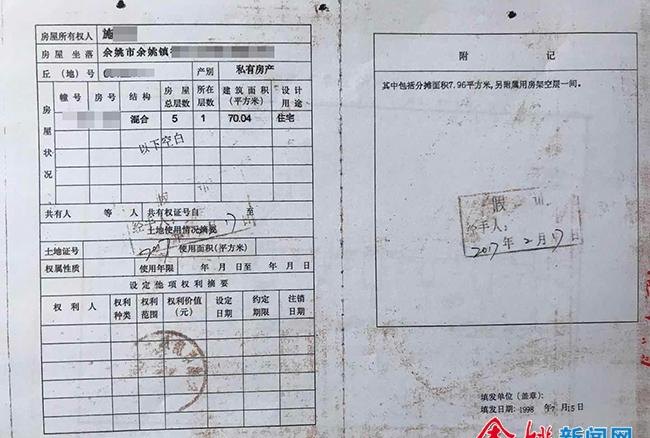 房屋所有权人 施
房屋坐落 余姚市余姚镇
丘(地)号 产别 私有房产
房屋状况
幢号 房号 结构 房屋总层数 所在层数 建筑面积(平方米) 设计用途
混合 5 1 70.04 住宅
以下空白
共有人 等 人 共有权证号自 至
土地使用情况摘要
土地证号 使用面积(平方米)
权属性质 使用年限 年 月 日至 年 月 日
设定他项权利摘要
权利人 权利种类 权利范围 权利价值(元) 设定日期 约定期限 注销日期
假
经手人:
2017
17
附 记
其中包括分摊面积7.96平方米,另附属用房架空层一间。
假
经手人:
2017年2月17日
填发单位(盖章):
填发日期:1998年7月15日
余姚新闻网